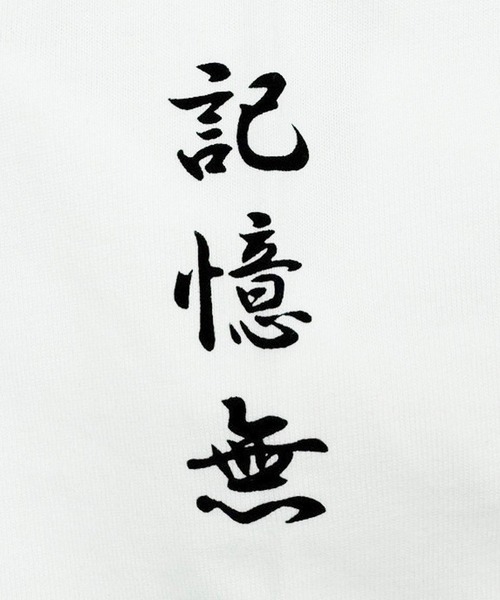 記憶無